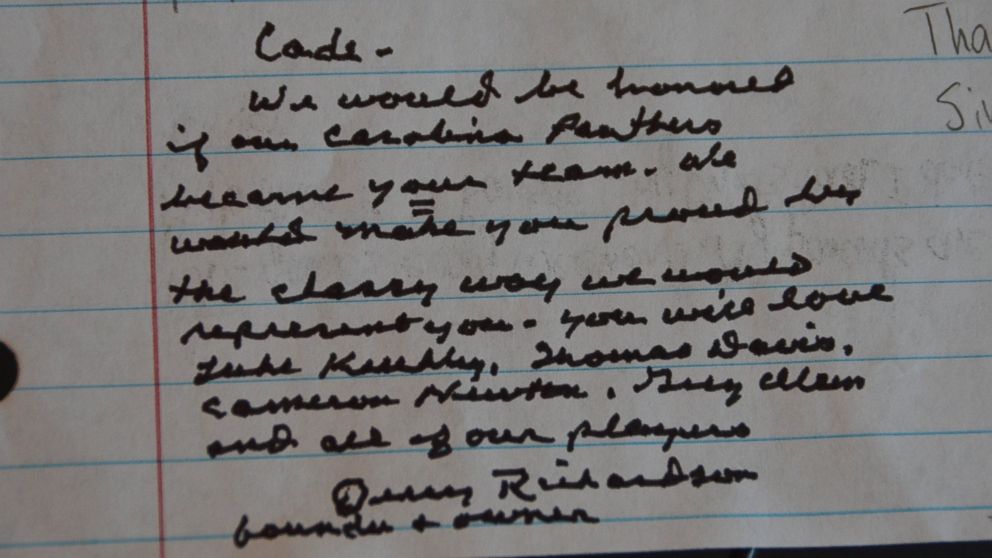 Cade -
We would be honored
if our Carolina Panthers
became your team. We
would make you proud by
the classy way we would
represent you. You will love
Luke Kuechly, Thomas Davis,
Cameron Newton, Greg Olsen
and all of our players
Jerry Richardson
founder + owner
Tha
Sin